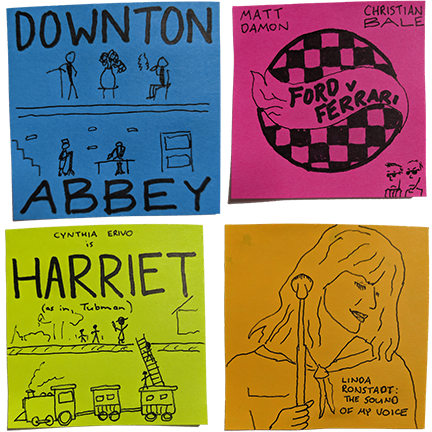 DOWNTON
ABBEY
MATT
DAMON
CHRISTIAN
BALE
FORD v
FERRARI
CYNTHIA ERIVO
is
HARRIET
(as in, Tubman)
LINDA
RONSTADT:
THE SOUND
OF MY VOICE